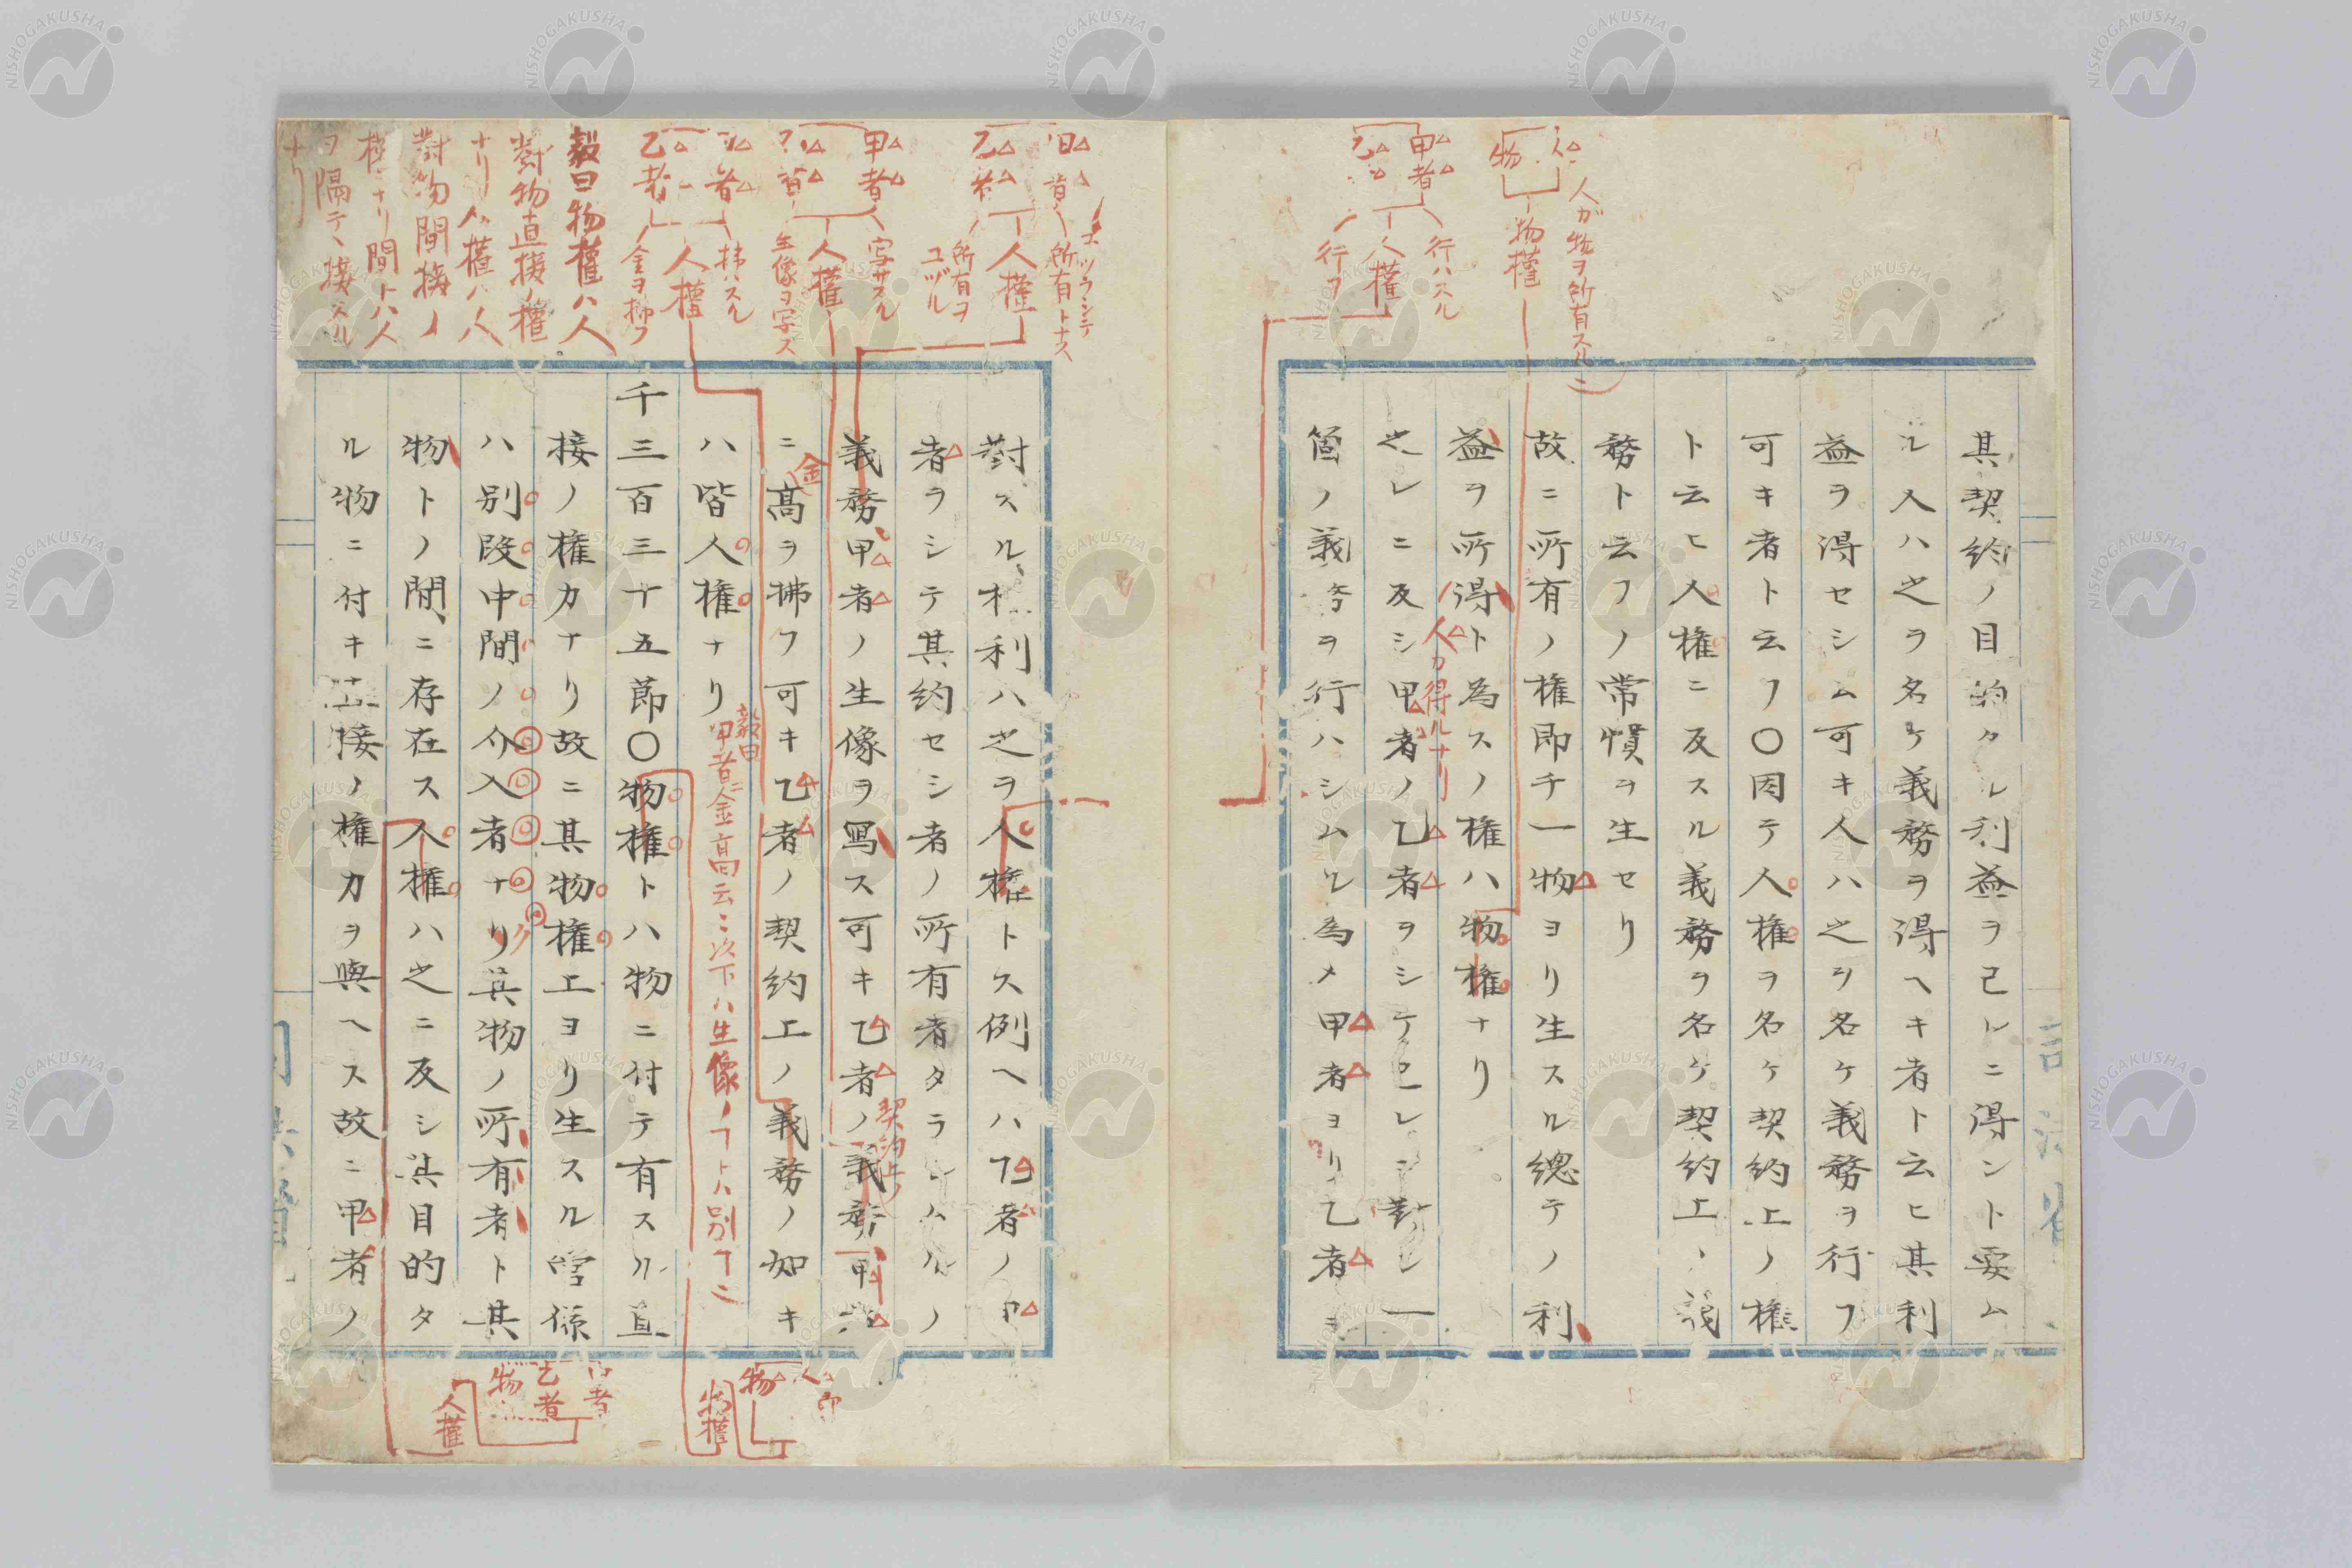 其契約ノ目的タル利益ヲ己レニ得ント要ム
ル人ハ之ヲ名ケ義務ヲ得ヘキ者ト云ヒ其利
益ヲ得セシム可キ人ハ之ヲ名ケ義務ヲ行フ
可キ者ト云フ〇因テ人権ヲ名ケ契約上ノ権
ト云ヒ人権ニ反スル義務ヲ名ケ契約上ノ義
務ト云フノ常慣ヲ生セリ
故ニ所有ノ権即チ一物ヨリ生スル總テノ利
益ヲ所得ト為スノ権ハ物権ナリ
之レニ反シ甲者ノ乙者ヲシテ己レニ對シ一
箇ノ義務ヲ行ハシムル為メ甲者ヨリ乙者ニ
人が物ヲ所有スルニ
物
物權
甲者
行ハスル
人權
行フ
人カ得ルナリ
對スル権利ハ之ヲ人権トス例ヘハ乙者ノ甲
者ヲシテ其約セシ者ノ所有者タラシムルノ
義務甲者ノ生像ヲ寫ス可キ乙者ノ義務甲者
ニ高ヲ拂フ可キ乙者ノ契約上ノ義務ノ如キ
ハ皆人権ナリ
千三百三十五節〇物権トハ物ニ付テ有スル直
接ノ権力ナリ故ニ其物権上ヨリ生スル管係
ハ別段中間ノ介入者ナリ其物ノ所有者ト其
物トノ間ニ存在ス人権ハ之ニ反シ其目的タ
ル物ニ付キ直接ノ権力ヲ與ヘス故ニ甲者ノ
所有トナス
人權
所有ヲ
ユヅル
甲者
写サスル
人權
生像ヲ写ス
拂ハスル
人權
金ヲ拂フ
乙者
毅曰物權ハ人
對物直接ノ權
ナリ人權ハ人
對物間接ノ
權ナリ間トハ人
ヲ隔テヽ接スル
ナリ
金
毅曰
甲者ニ金高云々次下ハ生像ノヿトハ別ヿニ
契約上ノ
物
物權
乙者
物
人權
NISHOGAKUSHA